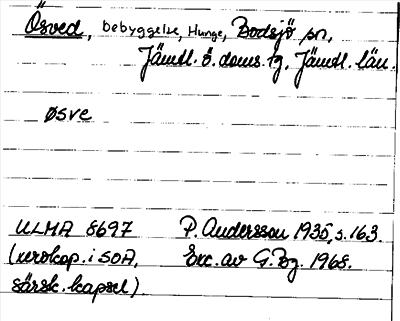 Ösved, bebyggelse, Hunge, Bodsjö sn,
Jämtl. ö. doms. tg. Jämtl. län.
øsve
ULMA 8697 P. Andersson 1935, s. 163.
(xerokop. i SOA, Exc. av G. Bg. 1968.
särsk. kapsel).